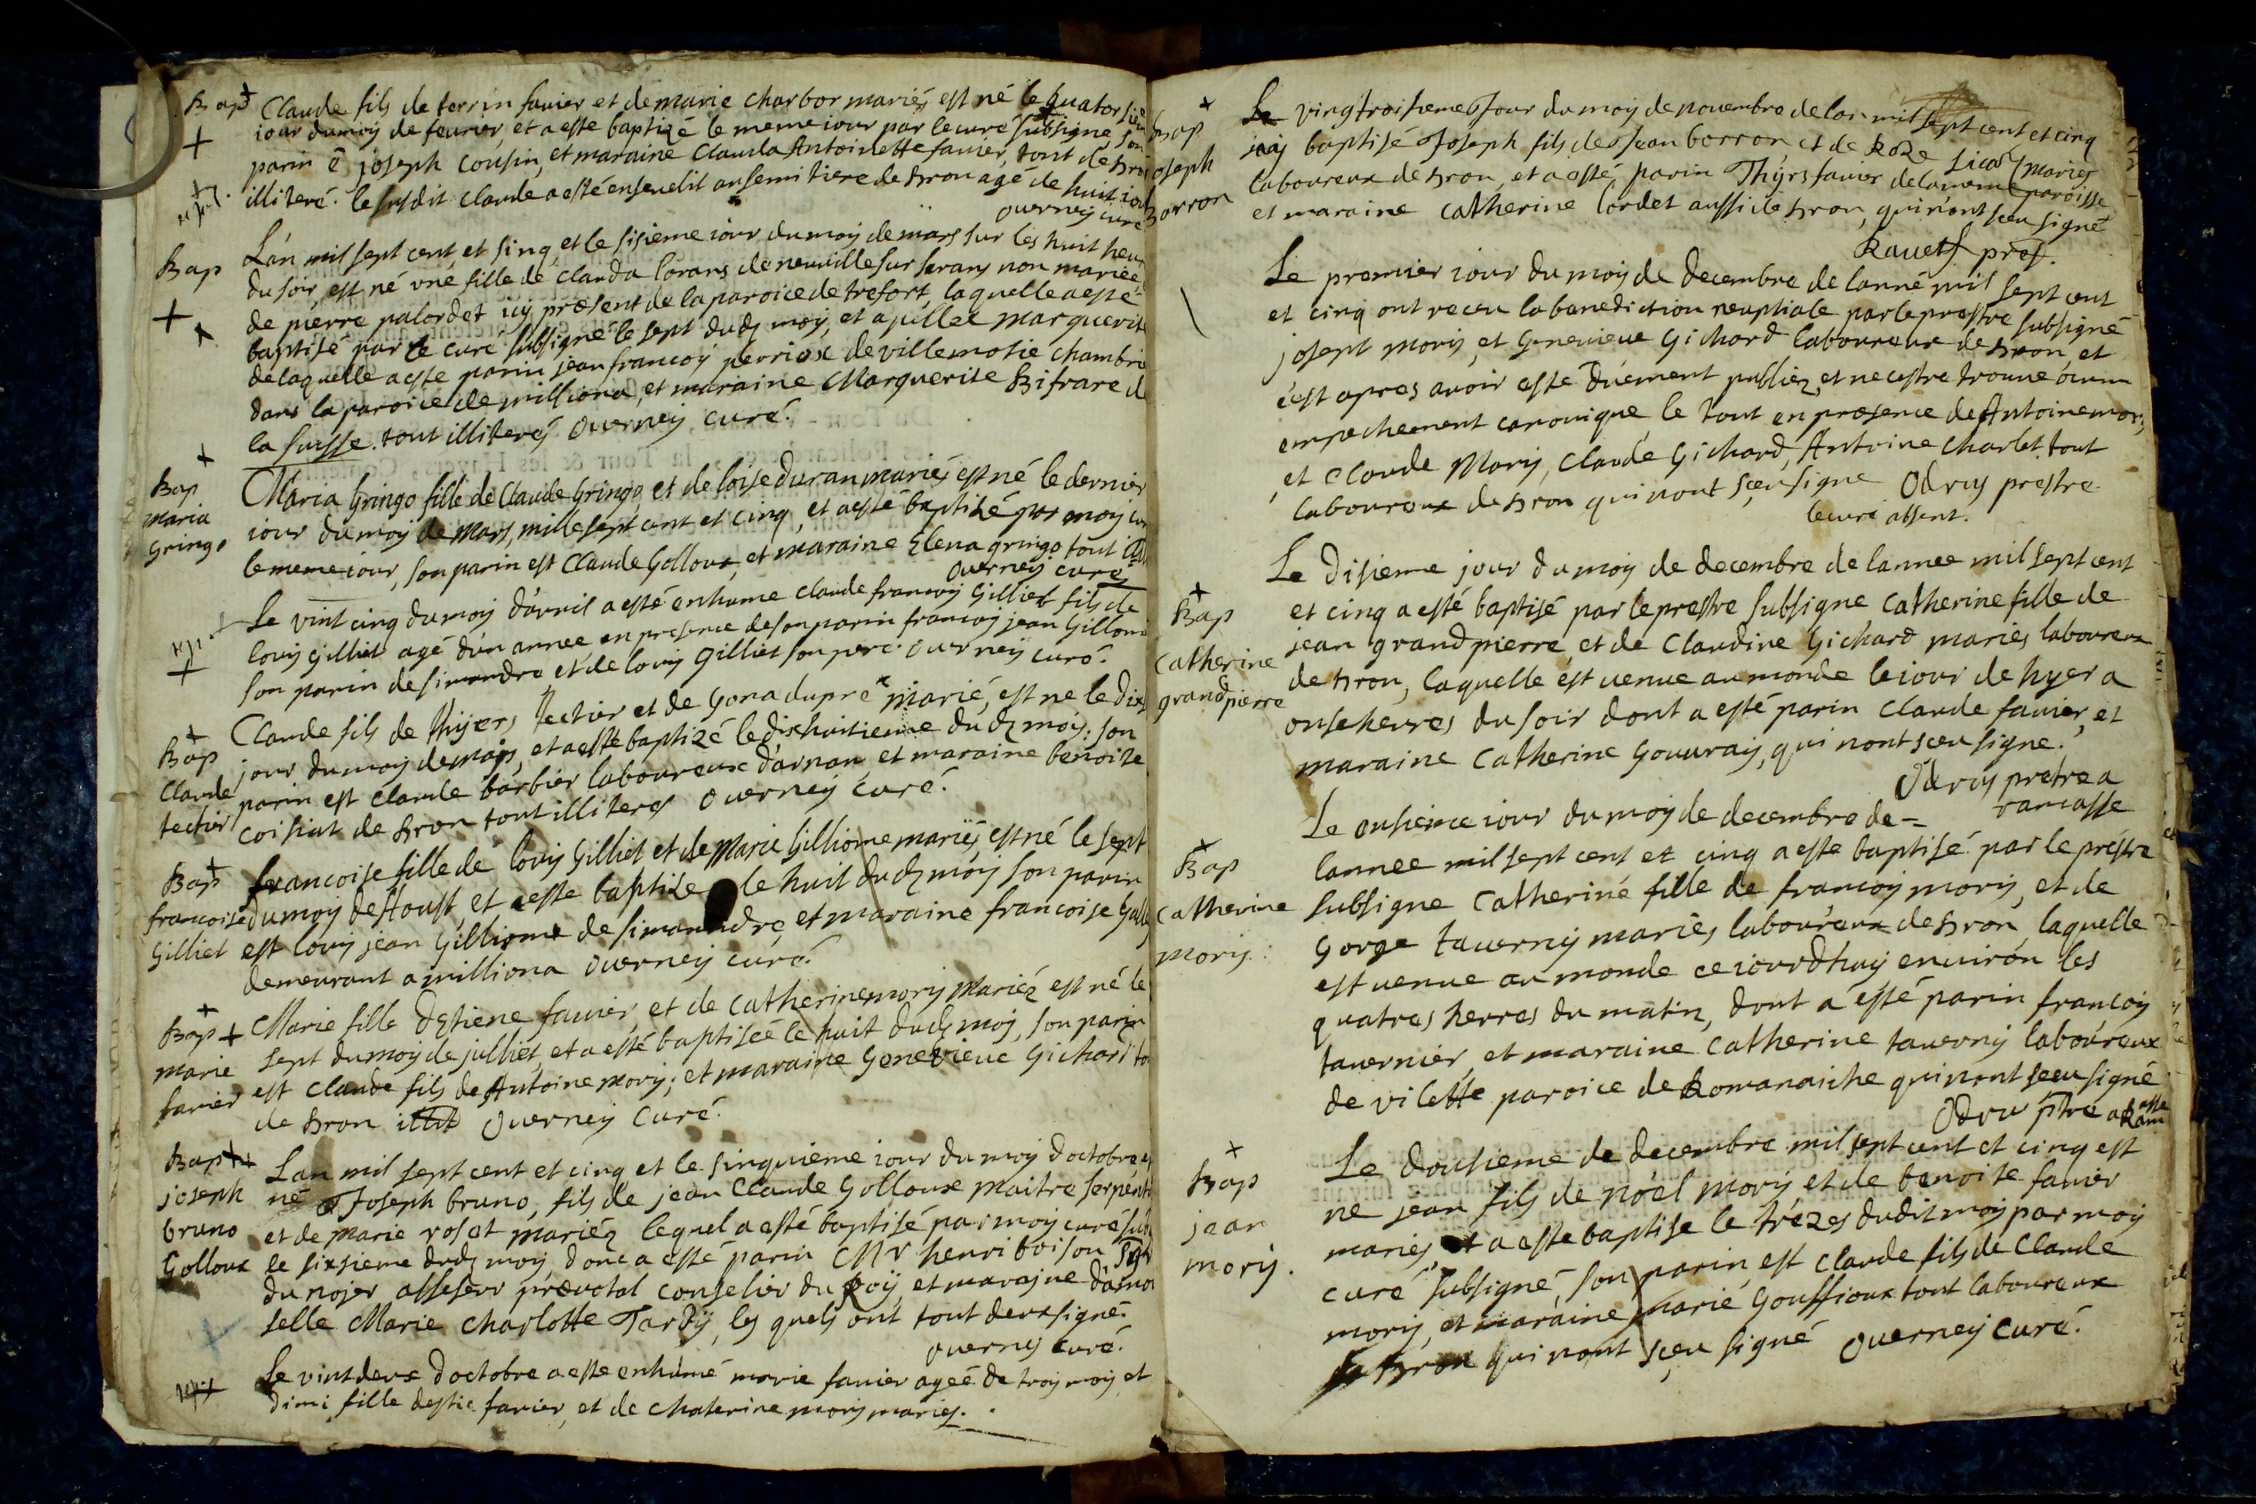 Bap Claude fils de terrin favier et de marie charbor mariés est né le quatorsie
iour du moy de feurier, et a este baptizé le meme iour par le curé subsigne son
parin ē joseph Cousin, et maraine Clauda Antoinette favier, tout de Bron
illiteré. le susdit Claude a esté enseuelit au semitiere de Bron agé de huit iour
ouerney curé
Bap L'an mil sept cent et sinq, et le sisieme iour du moy de mars sur les huit heur
du soir, est né vne fille de clauda lorans de neuuille sur serans non mariée,
de pierre palordet icy præsent de la paroice de trefort, laquelle a esté
baptisé par le curé subsigné le sept dud moy, et apillée marguerite
de laquelle a este parin jean francoy perrioux de villemosie chambrie
dans la paroice de milliona, et maraine Marguerite Bifrare de
la suisse. tout illiterés Ouerney curé.
Bap
maria
gringo
Maria Gringo fille de Claude Gringo, et de loise duran mariés est né le dernier
iour du moy de mars, mille sept cent et cinq, et a esté baptizé par moy cur
le meme iour, son parin est Claude Golloux, et maraine Elena gringo tout illi
Ouerney curé
Le vint cinq du moy d'avril a esté enhumé claude francoy Gilliet fils de
louy Gilliet agé d'un année, en presence de son parin francoy jean Gilloni
son parin de simandre et de louy Gilliet son pere. Ouerney curé.
Bap
Claude
tectier
Claude fils de Thyers tectier et de Gona dupré marié, est né le dix
jour du moy de may, et a esté baptizé le dixhuitieme dud moy: son
parin est Claude barbier laboureux d'arnan, et maraine benoite
coisiat de Bron tout illiteres Ouerney curé.
Bap
francoise
Gilliet
francoise fille de louy Gilliet et de Marie Gillione mariés, est né le sept
du moy de Aoust, et a esté baptize le huit dud moy son parin
est louy jean Gillione de simandre, et maraine francoise Gall
demeurant a milliona Ouerney curé.
Bap
marie
favier
Marie fille d'Etiene favier, et de Catherine mory mariéz est né le
sept du moy de julliet, et a esté baptiseé le huit dud moy, son parin
est Claude fils de Antoine mory; et maraine Genevieve Gichard to
de Bron illit Ouerney Curé.
Bap
joseph
bruno
Golloux
Lan mil sept cent et cinq et le sinquieme iour du moy d'octobre e
né Joseph bruno, fils de jean Claude Golloux maitre serpenti
et de marie roset mariéz lequel a esté baptisé par moy curé sub
le sixsieme dud moy, dont a esté parin Mr henri boison sgr
du nojer assesseur prævotal conselier du Roy, et maraine damoi
selle Marie Charlotte Tardy, les quels ont tout deux signé.
Ouerney curé.
Le vint deux d'octobre a este enhumé marie favier ageé de troy moy et
dimi fille destie favier, et de chaterine mory mariés.
Bap
joseph
borron
Le vingtroisieme Jour du moy de nouembre de lan mil sept cent et cinq
iaÿ baptisé Joseph fils de Jean borron et de Roze sicar mariés
laboureux de Bron, et a esté parin Thyrs favier de la meme paroisse
et maraine Catherine Cordet aussi de Bron, qui n'ont sceu signé
Rauet pres.
Le premier iour du moy de decembre de l'anné mil sept cent
et cinq ont receu la benediction neuptiale par le prestre subsigné
josept mory, et Geneuieue Gichard laboureux de Bron, et
c'est apres auoir esté duement publiez, et ne cestre trouue aucun
empechement canonique, le tout en præsence de Antoine mory,
et Claude Mory, Claude Gichard, Antoine Charlet, tout
laboureux de Bron qui n'ont sceu signe Odruy prestre
le curé absent.
Bap
Catherine
grandpierre
Le Disieme jour du moy de decembre de lannee mil sept cent
et cinq a esté baptisé par le prestre subsigne Catherine fille de
jean grandpierre, et de Claudine Gichard mariés laboureux
de Bron, laquelle est venue au monde le iour de hyer a
onse heures du soir dont a esté parin Claude favier, et
maraine Catherine Gouuray, qui n'ont sceu signe.
Odruy pretre a
ramasse
Bap
Catherine
mory:
Le onsieme iour du moy de decembre de
lannee mil sept cent et cinq a este baptisé par le préstre
subsigne Catherine fille de francoy mory, et de
Gorge tauerny mariés laboureux de Bron, laquelle
est venue au monde ce iourd'huy enuiron les
quatres herres du matin, dont a ésté parin francoy
tauernier, et maraine Catherine tauerny laboureux
de vilette paroice de Romanaiche qui n'ont sceu signé
Odru ptre a Ramasse
Bap
jean
mory.
Le dousieme de decembre mil sept cent et cinq est
ne jean fils de noël mory, et de benoite favier
mariés, et a este baptise le trezes dudit moy par moy
curé subsigné, son parin est Claude fils de Claude
mory, et maraine marie Gouffioux tout laboureux
de Bron qui n'ont sceu signé Ouerney Curé.